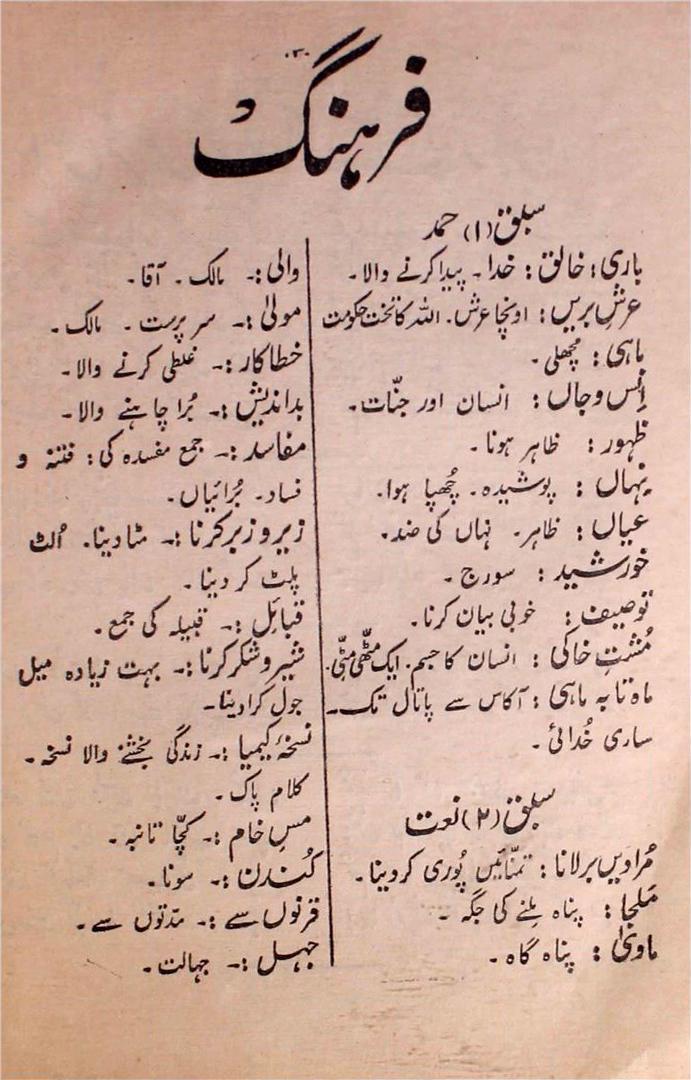 فرہنگ
سبق (۱) حمد
باری؛ خالق : خدا۔ پیدا کرنے والا۔
عرشِ بریں : اونچا عرش۔ اللہ کا تخت حکومت
ماہی : مچھلی۔
اِنس و جاں : انسان اور جنّات۔
ظہور : ظاہر ہونا۔
نہاں : پوشیدہ۔ چُھپا ہوا۔
عیاں : ظاہر۔ نہاں کی ضد۔
خورشید : سورج۔
توصیف : خوبی بیان کرنا۔
مُشتِ خاکی : انسان کا جسم۔ ایک مٹّھی مٹّی۔
ماہ تا بہ ماہی : آکاس سے پاتال تک۔
ساری خُدائی۔
سبق (۲) نعت
مُرادیں بر لانا : تمنّائیں پُوری کر دینا۔
مَلجا : پناہ ملنے کی جگہ۔
ماویٰ : پناہ گاہ۔
والی :۔ مالک۔ آقا۔
مولیٰ :۔ سرپرست۔ مالک۔
خطا کار :۔ غلطی کرنے والا۔
بد اندیش :۔ بُرا چاہنے والا۔
مفاسد :۔ جمع مفسدہ کی : فتنہ و
فساد۔ بُرائیاں۔
زیر و زبر کرنا :۔ مٹا دینا۔ اُلٹ
پلٹ کر دینا۔
قبائل :۔ قبیلہ کی جمع۔
شیر و شکر کرنا :۔ بہت زیادہ میل
جول کرا دینا۔
نسخۂ کیمیا :۔ زندگی بخشنے والا نسخہ۔
کلام پاک۔
مسِ خام :۔ کچّا تانبہ۔
کُندن :۔ سونا۔
قرنوں سے :۔ مدّتوں سے۔
جہل :۔ جہالت۔